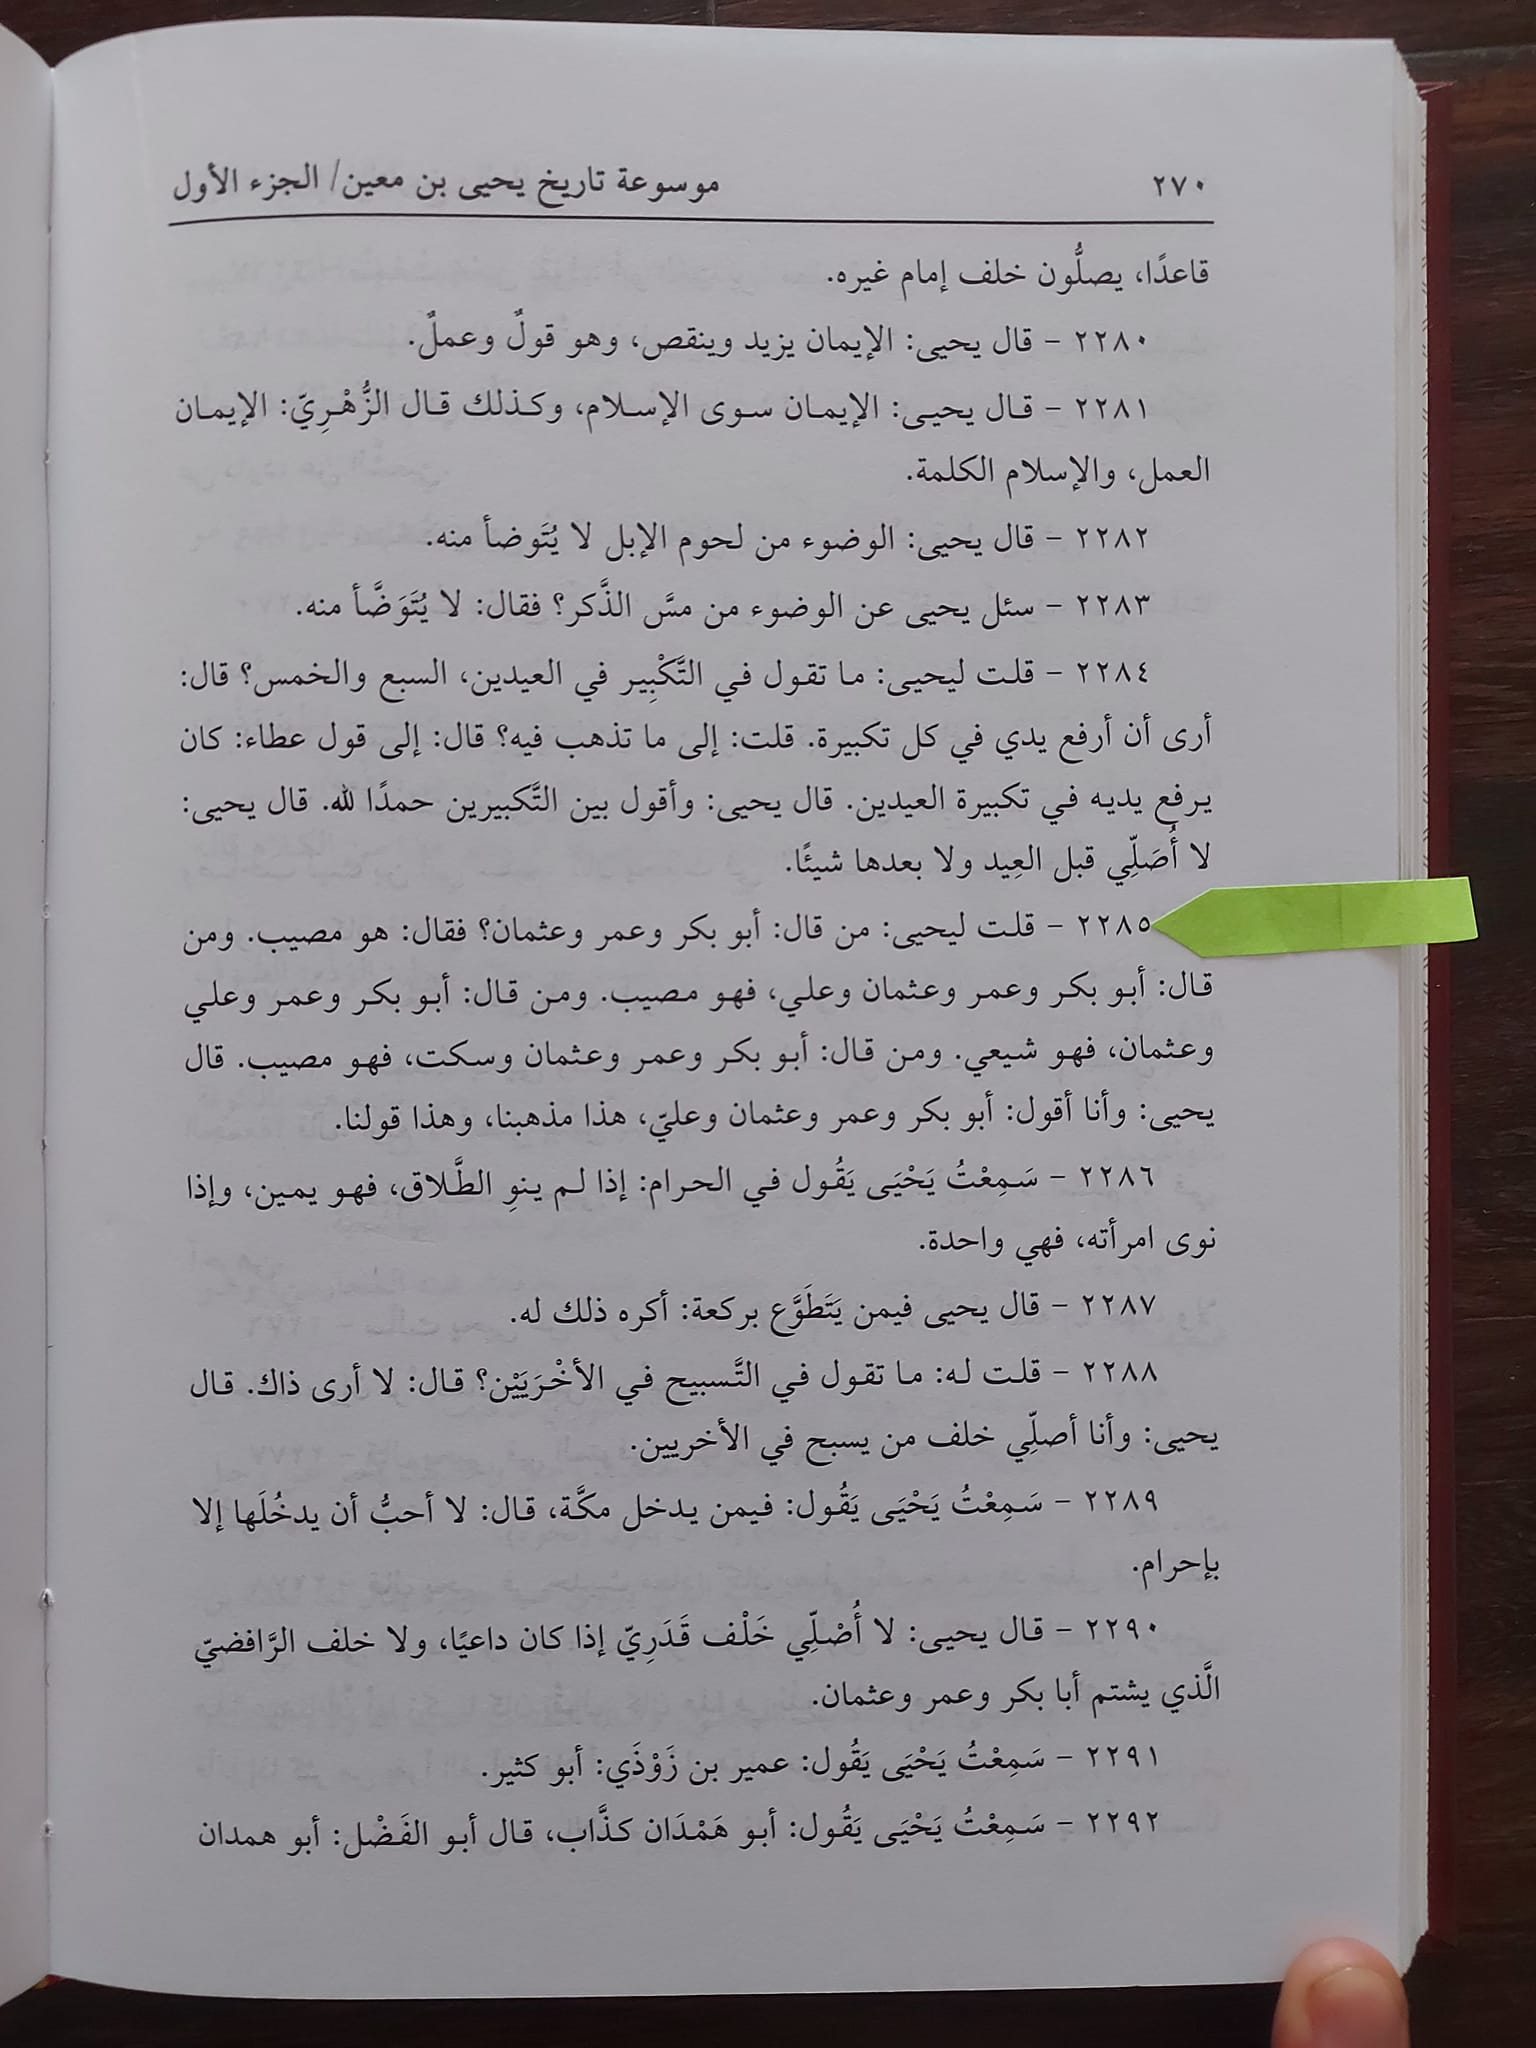 ٢٧٠ موسوعة تاريخ يحيى بن معين/ الجزء الأول
قاعدًا، يصلُّون خلف إمام غيره.
٢٢٨٠ - قال يحيى: الإيمان يزيد وينقص، وهو قولٌ وعملٌ.
٢٢٨١ - قال يحيى: الإيمان سوى الإسلام، وكذلك قال الزُّهْرِيّ: الإيمان
العمل، والإسلام الكلمة.
٢٢٨٢ - قال يحيى: الوضوء من لحوم الإبل لا يُتَوضأ منه.
٢٢٨٣ - سئل يحيى عن الوضوء من مسَّ الذَّكر؟ فقال: لا يُتَوَضَّأ منه.
٢٢٨٤ - قلت ليحيى: ما تقول في التَّكْبِير في العيدين، السبع والخمس؟ قال:
أرى أن أرفع يدي في كل تكبيرة. قلت: إلى ما تذهب فيه؟ قال: إلى قول عطاء: كان
يرفع يديه في تكبيرة العيدين. قال يحيى: وأقول بين التَّكبيرين حمدًا لله. قال يحيى:
لا أُصَلِّي قبل العِيد ولا بعدها شيئًا.
٢٢٨٥ - قلت ليحيى: من قال: أبو بكر وعمر وعثمان؟ فقال: هو مصيب. ومن
قال: أبو بكر وعمر وعثمان وعلي، فهو مصيب. ومن قال: أبو بكر وعمر وعلي
وعثمان، فهو شيعي. ومن قال: أبو بكر وعمر وعثمان وسكت، فهو مصيب. قال
يحيى: وأنا أقول: أبو بكر وعمر وعثمان وعليّ، هذا مذهبنا، وهذا قولنا.
٢٢٨٦ - سَمِعْتُ يَحْيَى يَقُول في الحرام: إذا لم ينوِ الطَّلاق، فهو يمين، وإذا
نوى امرأته، فهي واحدة.
٢٢٨٧ - قال يحيى فيمن يَتَطَوَّع بركعة: أكره ذلك له.
٢٢٨٨ - قلت له: ما تقول في التَّسبيح في الأخْرَيَيْن؟ قال: لا أرى ذاك. قال
يحيى: وأنا أصلِّي خلف من يسبح في الأخريين.
٢٢٨٩ - سَمِعْتُ يَحْيَى يَقُول: فيمن يدخل مكَّة، قال: لا أحبُّ أن يدخُلَها إلا
بإحرام.
٢٢٩٠ - قال يحيى: لا أُصْلِّي خَلْف قَدَرِيّ إذا كان داعيًا، ولا خلف الرَّافضيّ
الَّذي يشتم أبا بكر وعمر وعثمان.
٢٢٩١ - سَمِعْتُ يَحْيَى يَقُول: عمير بن زَوْذَي: أبو كثير.
٢٢٩٢ - سَمِعْتُ يَحْيَى يَقُول: أبو هَمْدَان كذَّاب، قال أبو الفَضْل: أبو همدان